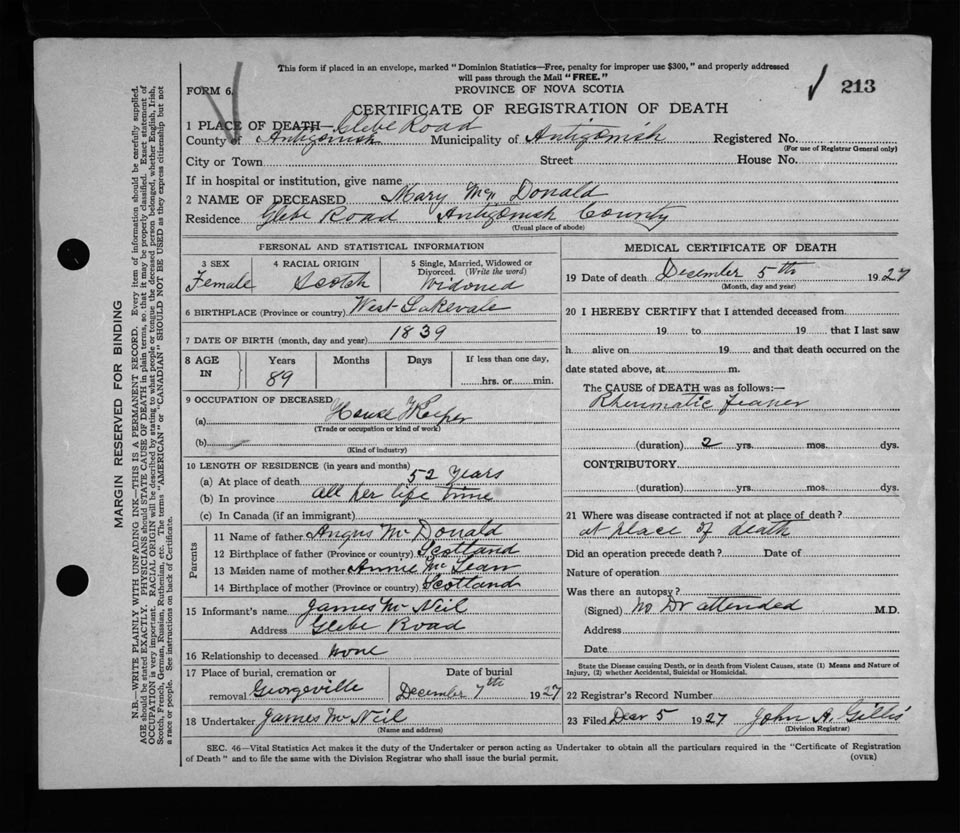 This form if placed in an envelope, marked "Dominion Statistics—Free, penalty for improper use $300," and properly addressed
will pass through the Mail "FREE."
FORM 6.
PROVINCE OF NOVA SCOTIA
213
CERTIFICATE OF REGISTRATION OF DEATH
1 PLACE OF DEATH— Glebe Road
County of Antigonish Municipality of Antigonish Registered No.
(For use of Registrar General only)
City or Town Street House No.
If in hospital or institution, give name
2 NAME OF DECEASED Mary Mc Donald
Residence Glebe Road Antigonish County
(Usual place of abode)
PERSONAL AND STATISTICAL INFORMATION
3 SEX Female
4 RACIAL ORIGIN Scotch
5 Single, Married, Widowed or
Divorced. (Write the word)
Widowed
6 BIRTHPLACE (Province or country) West Lakevale
7 DATE OF BIRTH (month, day and year) 1839
8 AGE IN Years 89 Months Days If less than one day,
hrs. or min.
9 OCCUPATION OF DECEASED
(a) House Keeper
(Trade or occupation or kind of work)
(b)
(Kind of industry)
10 LENGTH OF RESIDENCE (in years and months)
(a) At place of death 52 Years
(b) In province all her life time
(c) In Canada (if an immigrant)
Parents
11 Name of father Angus Mc Donald
12 Birthplace of father (Province or country) Scotland
13 Maiden name of mother Annie Mc Lean
14 Birthplace of mother (Province or country) Scotland
15 Informant's name James Mc Neil
Address Glebe Road
16 Relationship to deceased none
17 Place of burial, cremation or
removal Georgeville
Date of burial
December 7th 1927
18 Undertaker James Mc Neil
(Name and address)
MEDICAL CERTIFICATE OF DEATH
19 Date of death Desember 5th 1927
(Month, day and year)
20 I HEREBY CERTIFY that I attended deceased from
19 to 19 that I last saw
h alive on 19 and that death occurred on the
date stated above, at m.
The CAUSE of DEATH was as follows:—
Rheumatic
(duration) 2 yrs. mos. dys.
CONTRIBUTORY
(duration) yrs. mos. dys.
21 Where was disease contracted if not at place of death?
at place of death
Did an operation precede death? Date of
Nature of operation
Was there an autopsy?
(Signed) No Dr attended M.D.
Address
Date
State the Disease causing Death, or in death from Violent Causes, state (1) Means and Nature of
Injury, (2) whether Accidental, Suicidal or Homicidal.
22 Registrar's Record Number
23 Filed 5 1927 John A. Gillis
(Division Registrar)
SEC. 46—Vital Statistics Act makes it the duty of the Undertaker or person acting as Undertaker to obtain all the particulars required in the "Certificate of Registration
of Death" and to file the same with the Division Registrar who shall issue the burial permit.
(OVER)
MARGIN RESERVED FOR BINDING
N.B.—WRITE PLAINLY WITH UNFADING INK—THIS IS A PERMANENT RECORD. Every item of information should be carefully supplied.
AGE should be stated EXACTLY. PHYSICIANS should STATE CAUSE OF DEATH in plain terms, so that it may be properly classified. Exact statement of
OCCUPATION is very important. RACIAL ORIGIN will be described by stating to what people or tongue the deceased person belonged, whether English, Irish,
Scotch, French, German, Russian, Ruthenian, etc. The terms "AMERICAN" or "CANADIAN" SHOULD NOT BE USED as they express citizenship but not
a race or people. See instructions on back of Certificate.